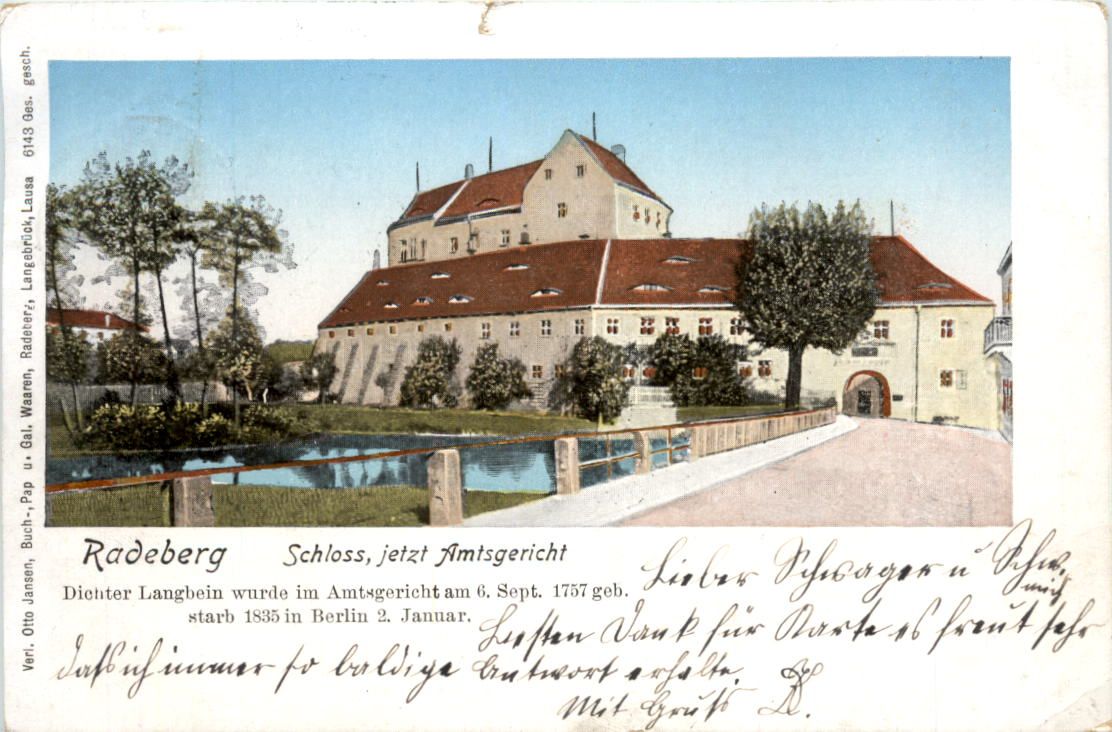 Verl. Otto Jansen, Buch-, Pap u. Gal. Waaren, Radeberg, Langebrück, Lausa 6143 Ges. gesch.
Radeberg Schloss, jetzt Amtsgericht
Dichter Langbein wurde im Amtsgericht am 6. Sept. 1757 geb.
starb 1835 in Berlin 2. Januar.
Lieber Schwager u Schw.
Besten Dank für Karte es freut sehr
mich
dass ich immer so baldige Antwort erhalte.
Mit Gruss